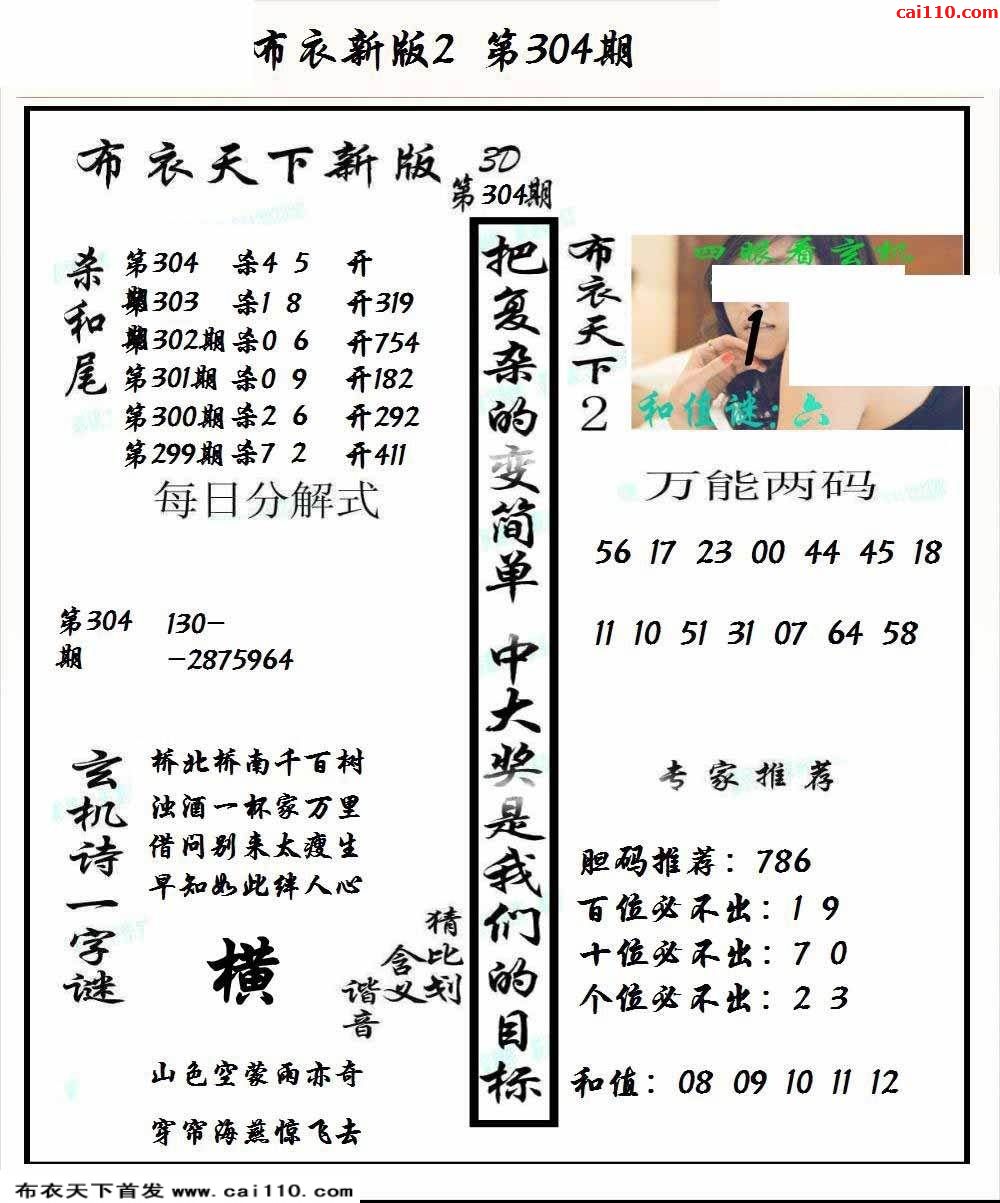 cai110.com
布衣新版2 第304期
布衣天下新版 3D
第304期
杀和尾
第304 杀4 5 开
期303 杀1 8 开319
第302期 杀0 6 开754
第301期 杀0 9 开182
第300期 杀2 6 开292
第299期 杀7 2 开411
每日分解式
第304期 130-
-2875964
玄机诗一字谜
桥北桥南千百树
浊酒一杯家万里
借问别来太瘦生
早知如此绊人心
横
猜比划
含义
谐音
山色空蒙雨亦奇
穿帘海燕惊飞去
把复杂的变简单 中大奖是我们的目标
布衣天下2
四眼看玄机
1
和值谜:六
万能两码
56 17 23 00 44 45 18
11 10 51 31 07 64 58
专家推荐
胆码推荐：786
百位必不出：1 9
十位必不出：7 0
个位必不出：2 3
和值：08 09 10 11 12
布衣天下首发 www.cai110.com